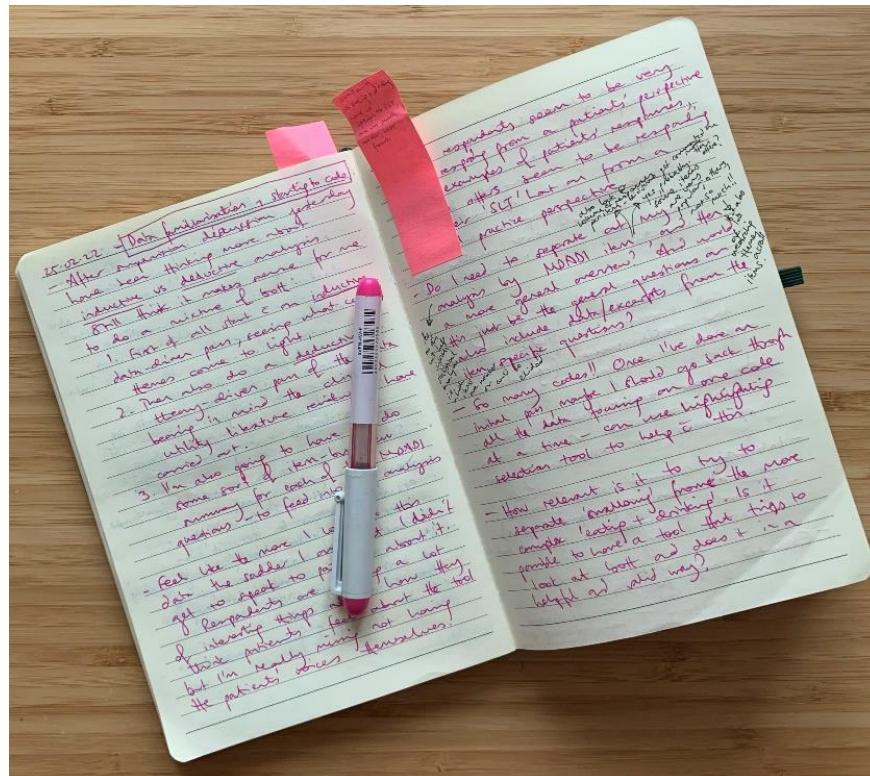 25.02.22 - Data familiarisation + starting to code
- After supervision discussion yesterday
have been thinking more about
inductive vs deductive analysis.
Still think it makes sense for me
to do a mixture of both.
1. First of all start c an inductive
data-driven pass, seeing what
themes come to light.
2. Then also do a deductive
theory driven pass of the data
bearing in mind the clinical
utility literature review I have
carried out.
3. I'm also going to have to do
some sort of item-by-item
summary for each of the MDADI
questions - to feed into analysis
- Feel like the more I look at this
data the sadder I am that I didn't
get to speak to patients about it.
Respondents are saying a lot
of interesting things about how they
think patients feel about the tool
but I'm really missing not having
the patients' voices themselves.
respondents seem to be very
from a patients' perspective
examples of patients' responses,
others seem to be responding
SLT' hat on from a
practice perspective
- Do I need to separate out my
analysis by MDADI item and then
a more general overview? And would
this just be the general questions or
also include data/excerpts from the
item specific questions?
- So many codes!! Once I've done an
initial pass, maybe I should go back through
all the data focusing on one code
at a time - can use highlighting
selection tool to help c this.
- How relevant is it to try to
separate 'swallowing' from the more
complex 'eating + drinking'. Is it
possible to have a tool that tries to
look at both and does it in a
helpful and valid way?